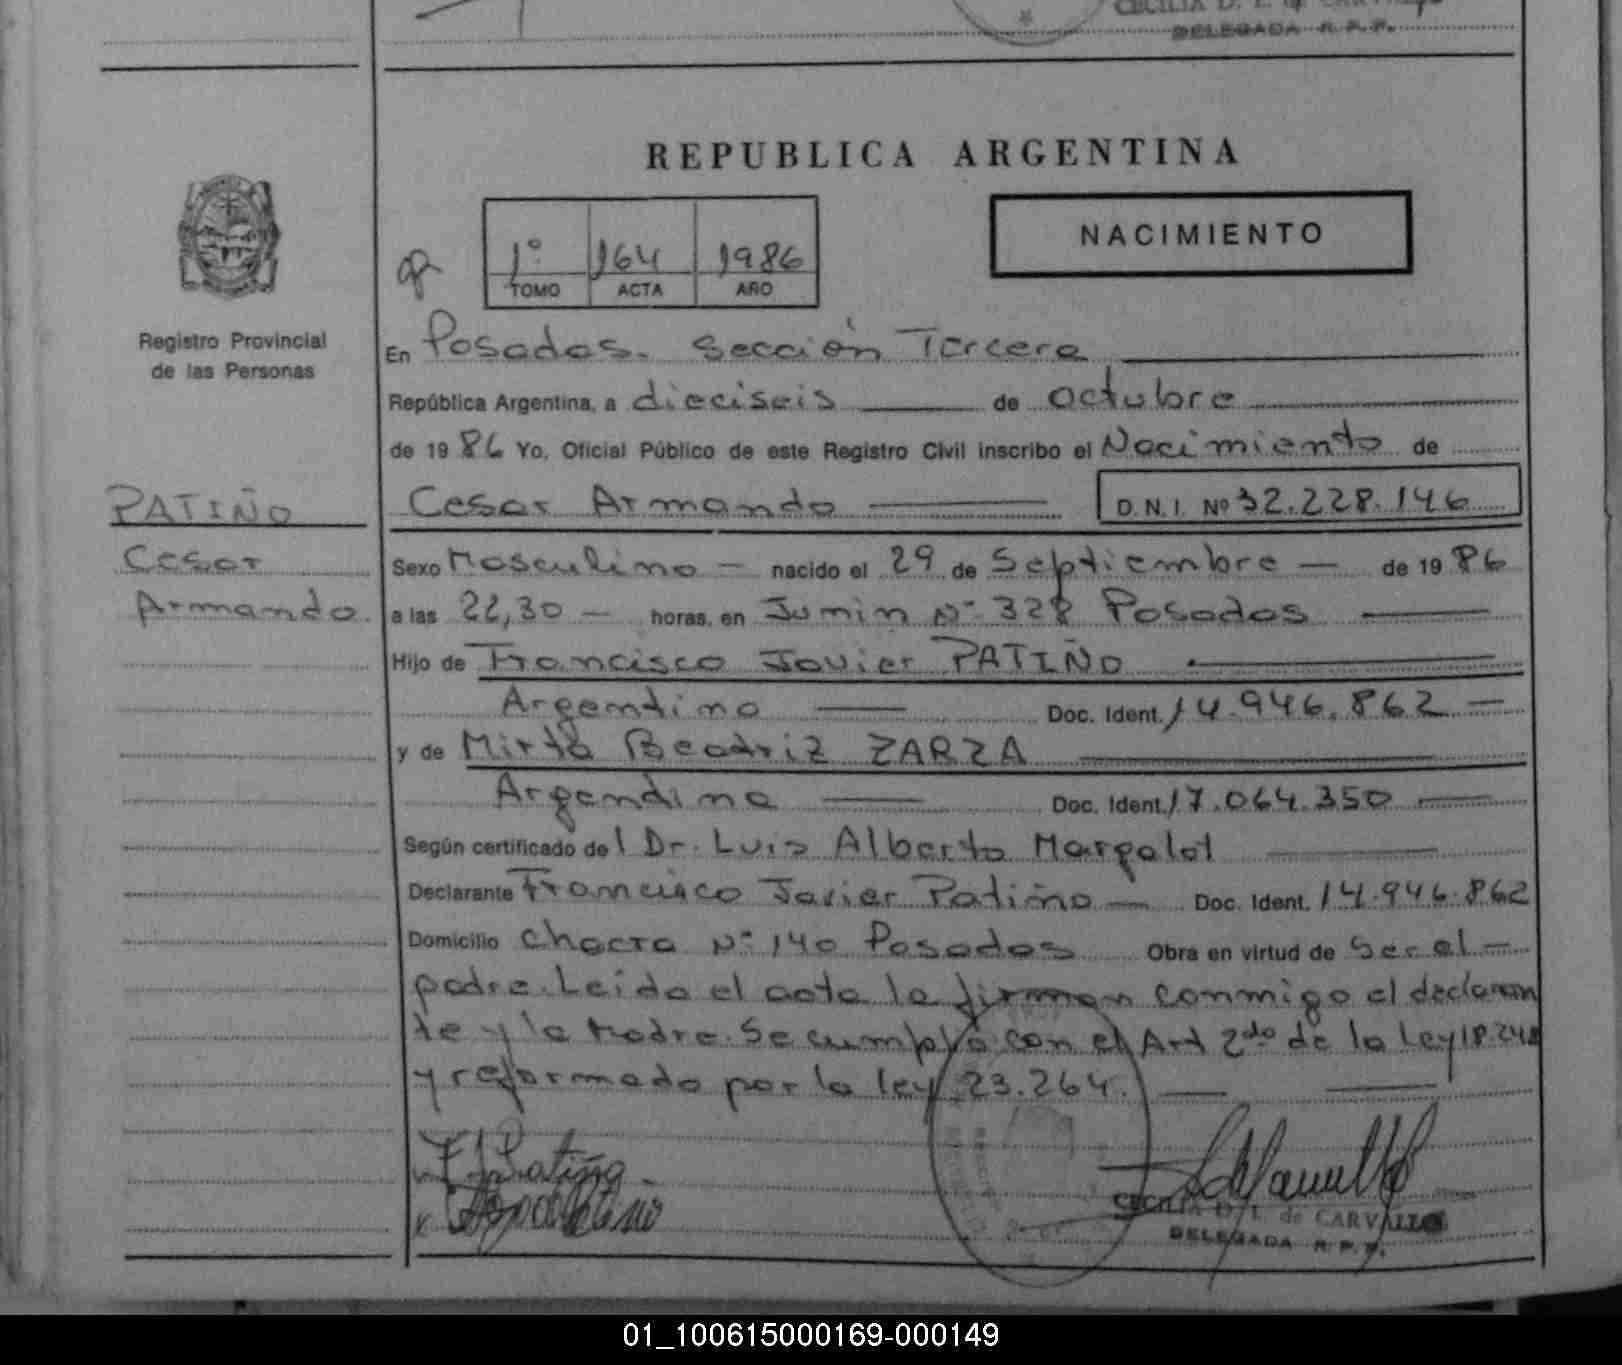 CECILIA D. I. de CARVALLO
DELEGADA R. P. P.
REPUBLICA ARGENTINA
NACIMIENTO
1º 164 1986
TOMO ACTA AÑO
Registro Provincial
de las Personas
En Posadas. Sección Tercera
República Argentina, a dieciseis de octubre
de 19 86 Yo, Oficial Público de este Registro Civil inscribo el Nacimiento de
PATIÑO
Cesar Armando D.N.I. Nº 32.228.146
Cesar
Armando.
Sexo Masculino - nacido el 29 de Septiembre - de 19 86
a las 22,30 - horas, en Junin Nº 328 Posadas
Hijo de Francisco Javier PATIÑO
Argentino Doc. Ident. 14.946.862 -
y de Mirta Beatriz ZARZA
Argentina Doc. Ident. 17.064.350
Según certificado del Dr. Luis Alberto Margalot
Declarante Francisco Javier Patiño - Doc. Ident. 14.946.862
Domicilio Chacra Nº 140 Posadas Obra en virtud de Ser el -
padre. Leida el acta la firman conmigo el declaran
te y la Madre. Se cumplió con el Art 2do de la Ley 18.248
y reformado por la ley 23.264.
F J Patiño
CECILIA D. I. de CARVALLO
DELEGADA R. P. P.
01_100615000169-000149